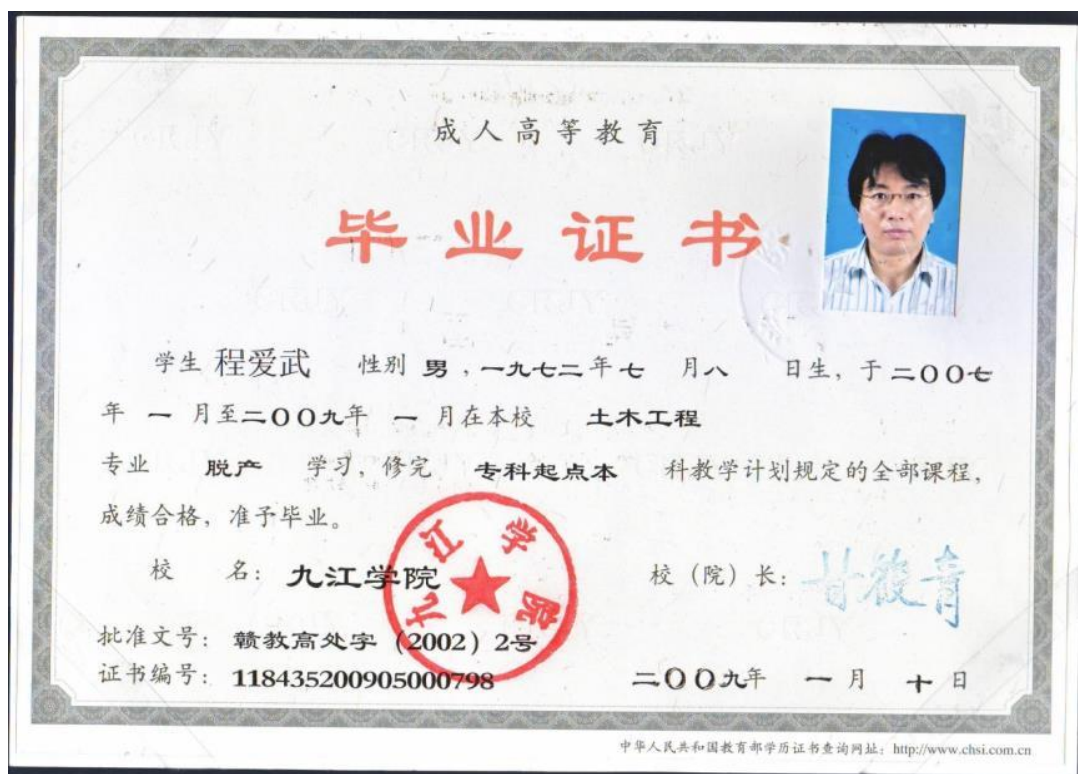 成人高等教育
毕业证书
学生 程爱武 性别 男，一九七二年七 月八 日生，于二〇〇七
年 一 月至二〇〇九年 一 月在本校 土木工程
专业 脱产 学习，修完 专科起点本 科教学计划规定的全部课程，
成绩合格，准予毕业。
校 名：九江学院
九江学院
校（院）长：甘筱青
批准文号：赣教高处字（2002）2号
证书编号：118435200905000798
二〇〇九年 一 月 十 日
中华人民共和国教育部学历证书查询网址：http://www.chsi.com.cn